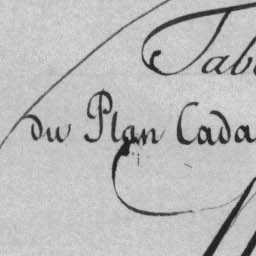 Tab
du Plan Cada